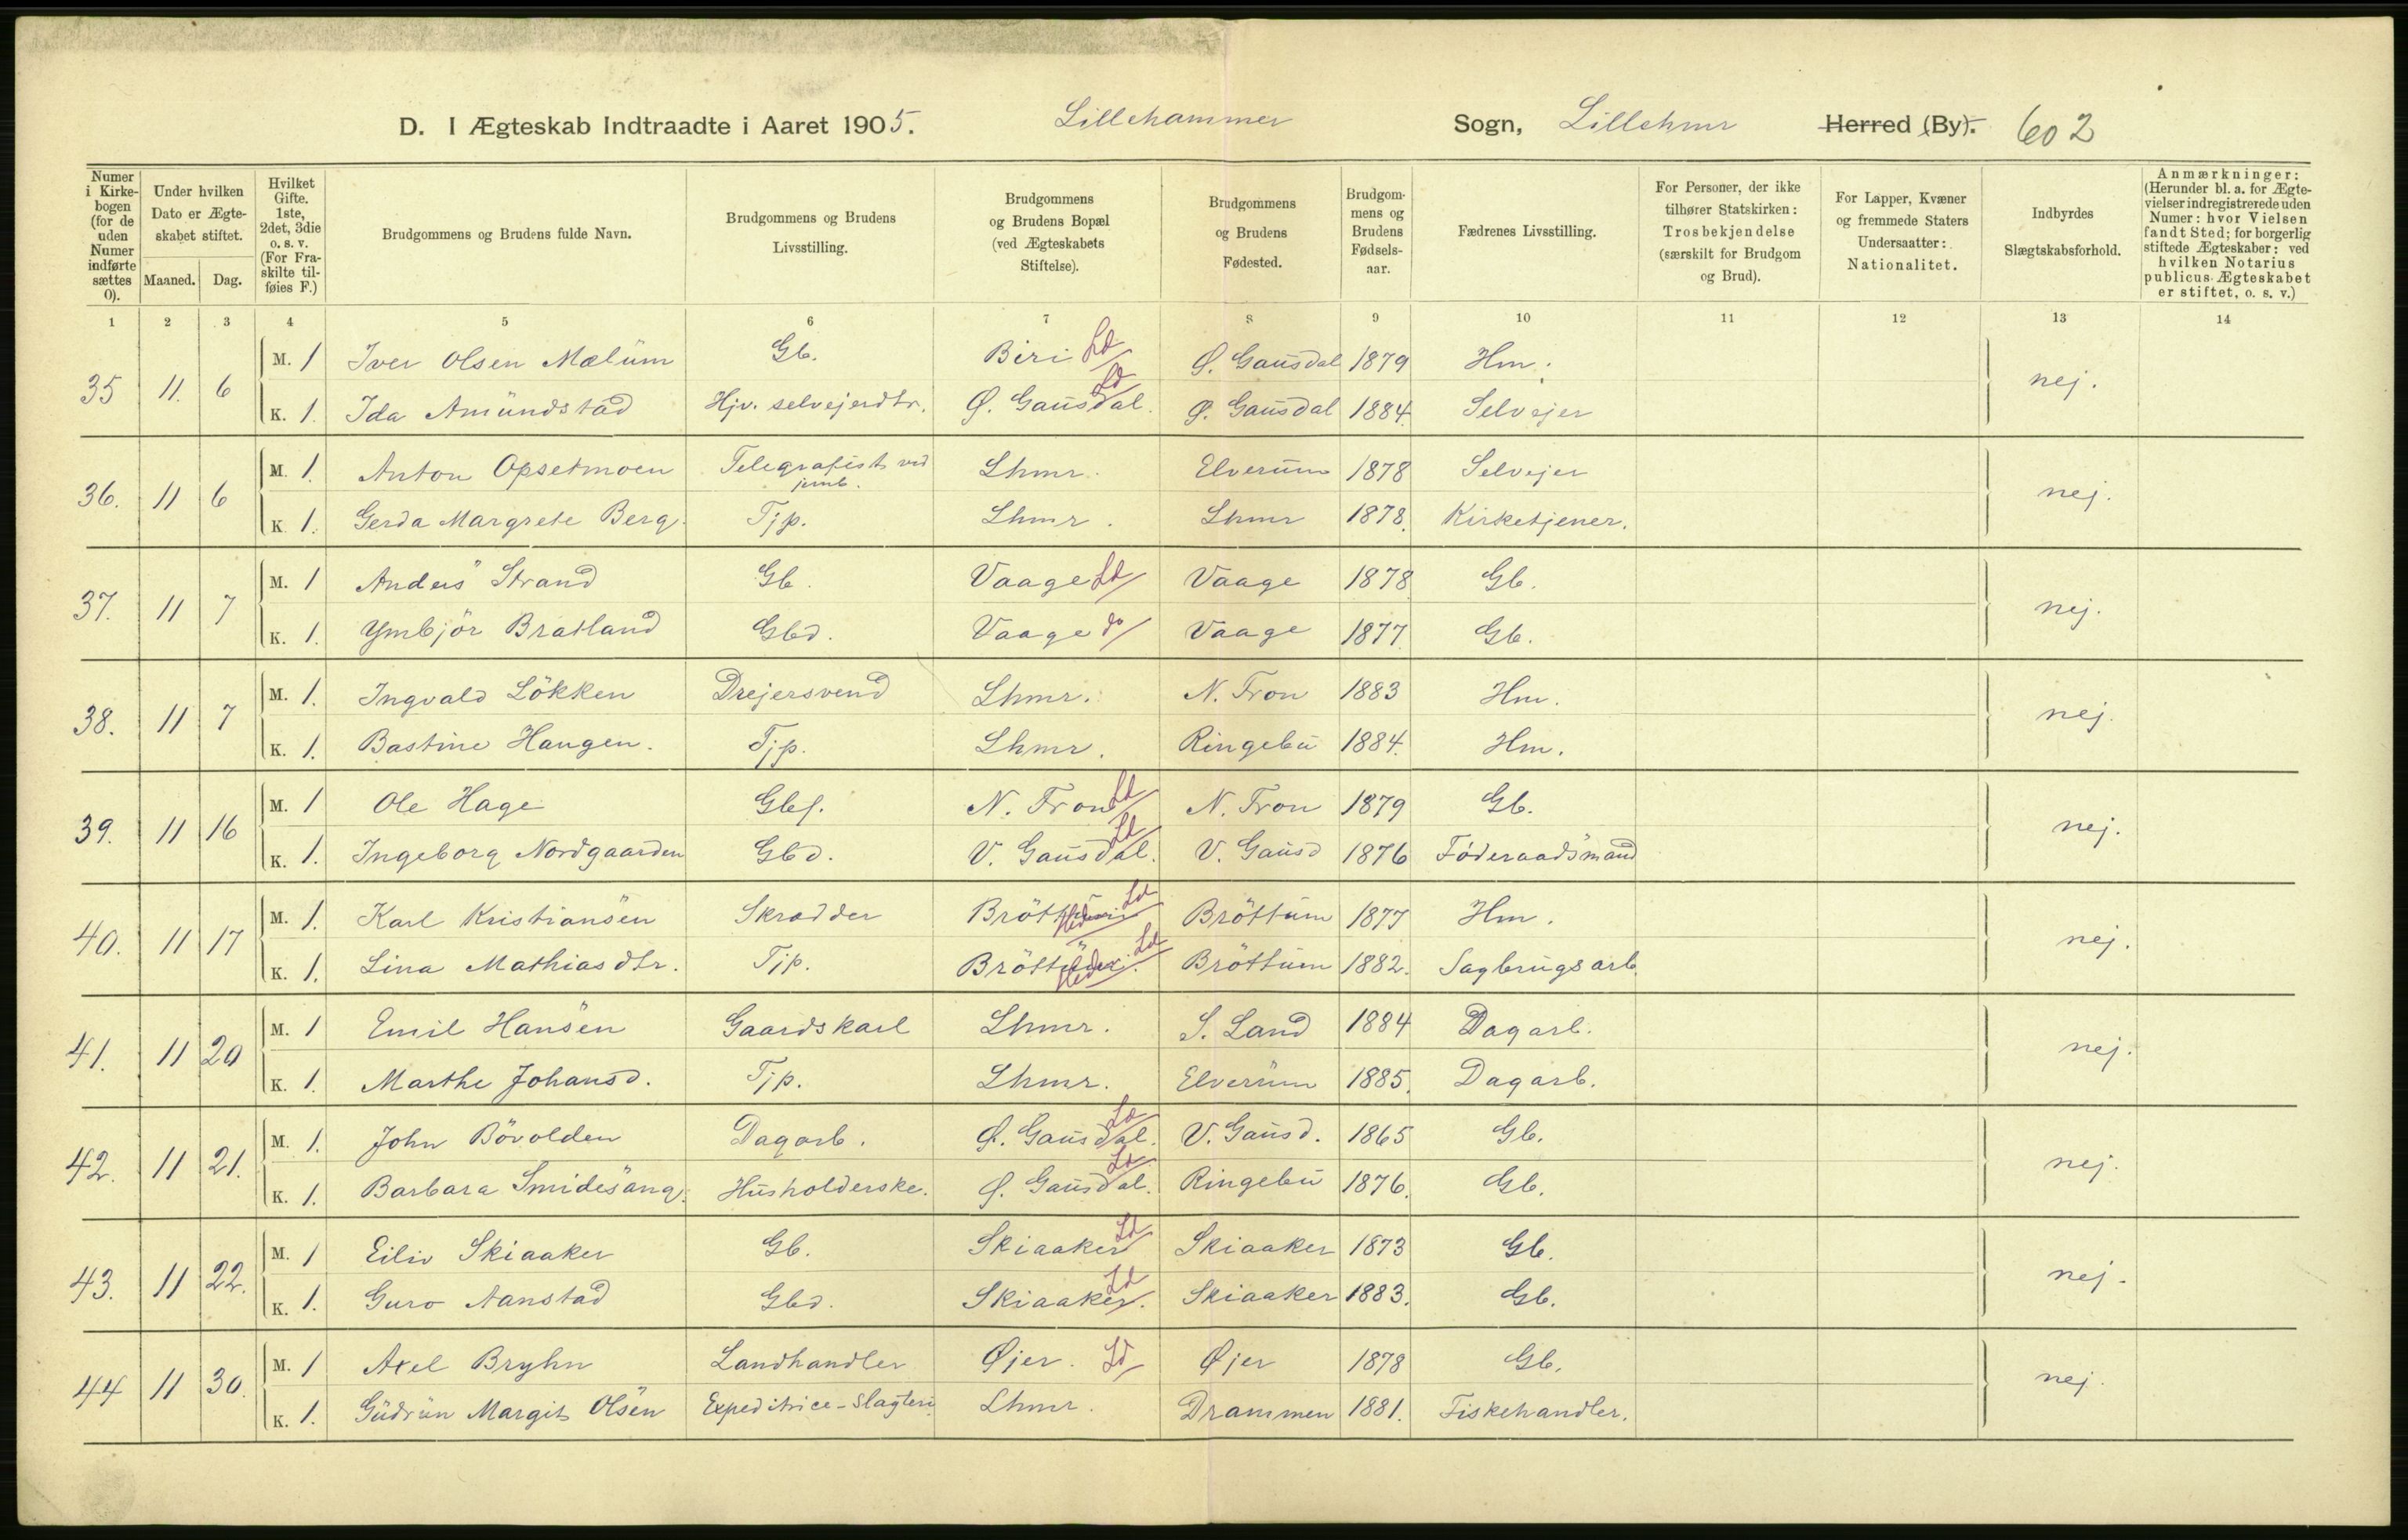 D. I Ægteskab Indtraadte i Aaret 1905. Lillehammer Sogn, Lillehmr Herred (By). 602
Numer i Kirkebogen (for de uden Numer indførte sættes 0). | Under hvilken Dato er Ægteskabet stiftet. Maaned. Dag. | Hvilket Gifte. 1ste, 2det, 3die o. s. v. (For Fraskilte tilføies F.) | Brudgommens og Brudens fulde Navn. | Brudgommens og Brudens Livsstilling. | Brudgommens og Brudens Bopæl (ved Ægteskabets Stiftelse). | Brudgommens og Brudens Fødested. | Brudgommens og Brudens Fødselsaar. | Fædrenes Livsstilling. | For Personer, der ikke tilhører Statskirken: Trosbekjendelse (særskilt for Brudgom og Brud). | For Lapper, Kvæner og fremmede Staters Undersaatter: Nationalitet. | Indbyrdes Slægtskabsforhold. | Anmærkninger: (Herunder bl. a. for Ægtevielser indregistrerede uden Numer: hvor Vielsen fandt Sted; for borgerlig stiftede Ægteskaber: ved hvilken Notarius publicus Ægteskabet er stiftet, o. s. v.)
1 2 3 4 5 6 7 8 9 10 11 12 13 14
35 11. 6 M. 1 Iver Olsen Mælum Gb. Biri Ld Ø. Gausdal 1879 Hm. nej.
K. 1. Ida Amundstad Hjv. selvejerdtr. Ø. Gausdal. Ld Ø. Gausdal 1884. Selvejer
36. 11 6 M. 1. Anton Opsetmoen Telegrafist ved jernb. Lhmr. Elverum 1878 Selvejer nej.
K. 1. Gerda Margrete Berg. Tjp. Lhmr. Lhmr 1878. Kirketjener.
37. 11 7 M. 1 Anders Strand Gb. Vaage Ld Vaage 1878 Gb. nej.
K. 1. Ymbjör Bratland Gbd. Vaage do Vaage 1877. Gb.
38. 11 7 M. 1. Ingvald Lökken Drejersvend Lhmr. N. Fron 1883 Hm. nej.
K. 1. Bastine Haugen. Tjp. Lhmr. Ringebu 1884. Hm.
39. 11 16 M. 1 Ole Hage Gbf. N. Fron Ld N. Fron 1879 Gb. nej.
K. 1. Ingeborg Nordgaarden Gbd. V. Gausdal. Ld V. Gausd 1876 Föderaadsmand
40. 11 17 M. 1. Karl Kristiansen Skrædder Bröttum Ld Bröttum 1877 Hm. nej.
K. 1. Lina Mathiasdtr. Tjp. Bröttum. Ld Bröttum 1882. Sagbrugsarb.
41. 11 20 M. 1 Emil Hansen Gaardskarl Lhmr. S. Land 1884 Dagarb. nej.
K. 1. Marthe Johansd. Tjp. Lhmr. Elverum 1885. Dagarb.
42. 11 21. M. 1. John Bövolden Dagarb. Ø. Gausdal. Ld V. Gausd. 1865 Gb. nej.
K. 1. Barbara Smidesang. Husholderske. Ø. Gausdal. Ld Ringebu 1876. Gb.
43. 11 22. M. 1 Eiliv Skiaaker Gb. Skiaaker Ld Skiaaker 1873 Gb. nej.
K. 1. Guro Aanstad Gbd. Skiaaker. Ld Skiaaker 1883. Gb.
44 11 30. M. 1 Axel Bryhn Landhandler Øjer. Ld Øjer 1878 Gb. nej.
K. 1. Gudrun Margit Olsen Expeditrice - Slagteri Lhmr. Drammen 1881. Fiskehandler.